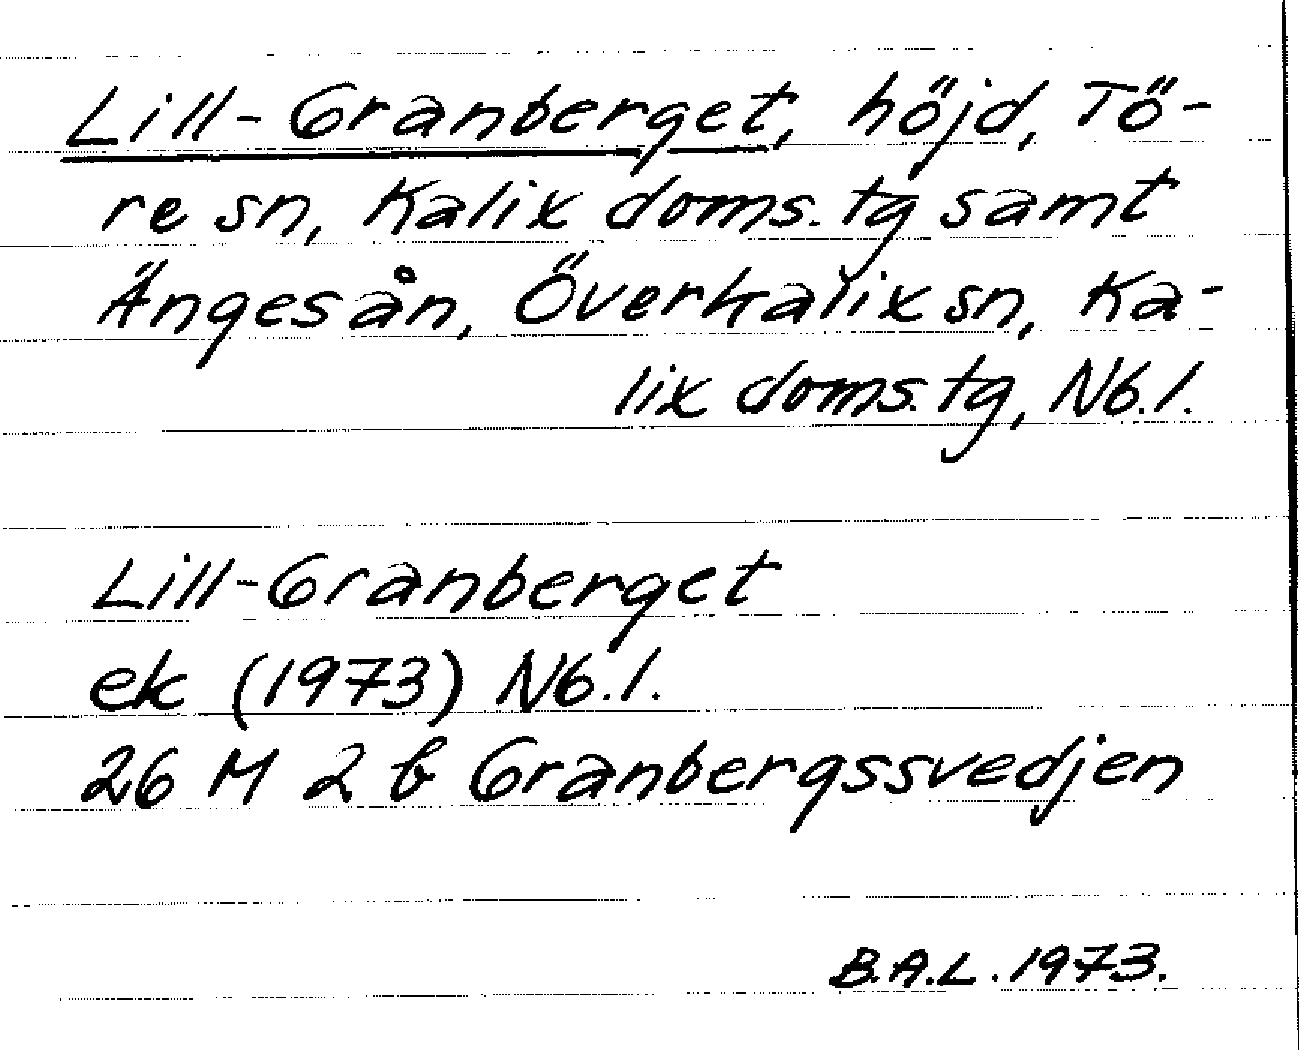 Lill-Granberget, höjd, Tö-
re sn, Kalix doms.tg samt
Ängesån, Överkalix sn, Ka-
lix doms.tg, Nb.l.
Lill-Granberget
ek (1973) Nb.l.
26 M 2 b Granbergssvedjen
B.A.L. 1973.